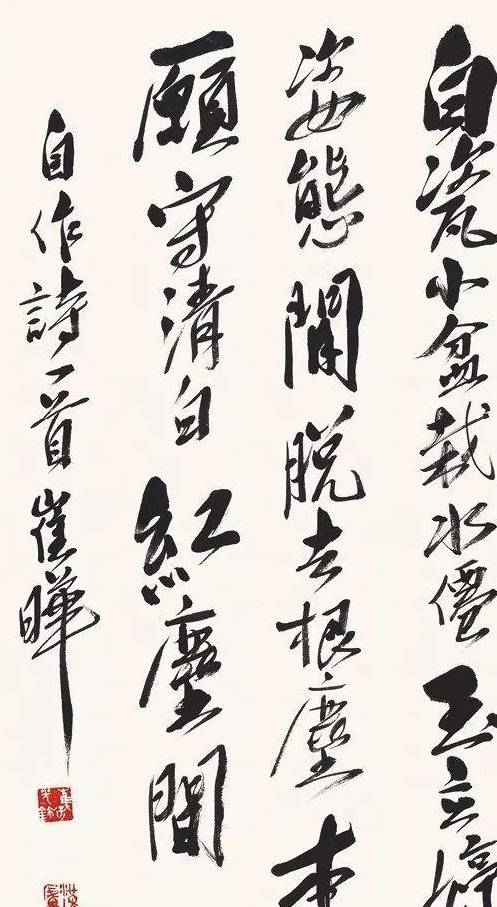 白瓷小盆栽水僊玉立婷
姿態閒脫去根塵本
願守清白紅塵間
自作詩一首崔暉